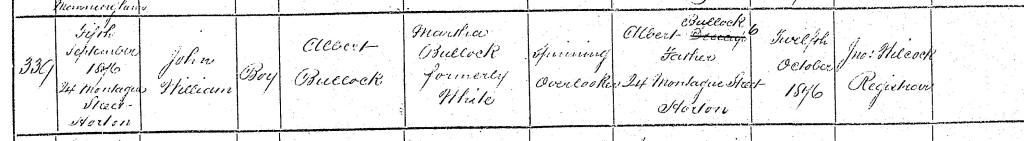 339
Fifth
September
1876
24 Montague
Street
Horton
John
William
Boy
Albert
Bullock
Martha
Bullock
formerly
White
Spinning
Overlooker
Bullock
Albert
Father
24 Montague Street
Horton
Twelfth
October
1876
Jno. Wilcock
Registrar